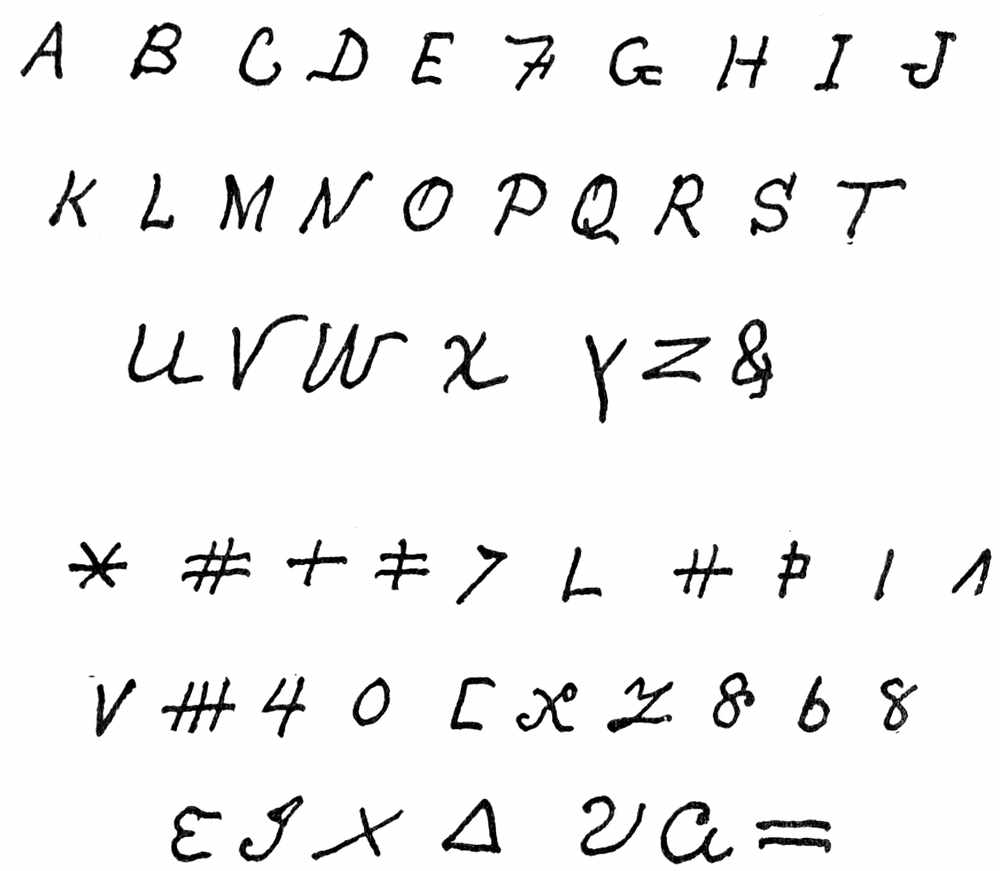 A B C D E F G H I J
K L M N O P Q R S T
U V W X Y Z &
* # + ‡ > L
V 4 O [ X Z 8 6 8
Ɛ J X Δ V a =